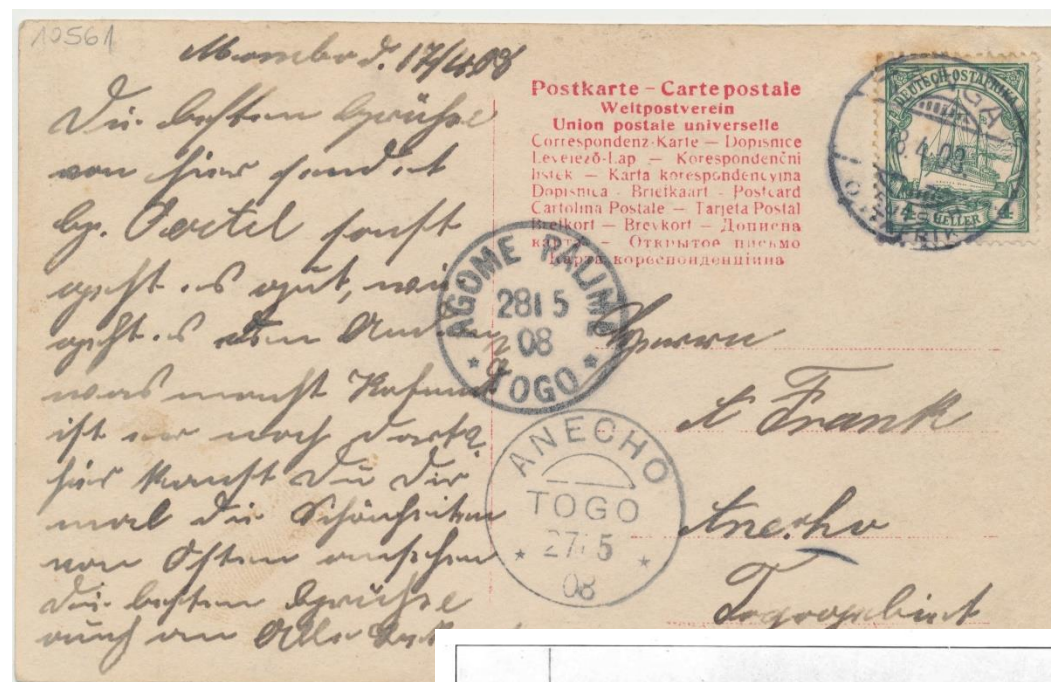 10561
Mombo d. 17/4.08
Die besten Grüße
von hier sendet
Oertel sonst
geht es gut, wie
geht es den Andern
was macht
ist er noch dort?
hier kannst Du Dir
mal die Schönheiten
von Osten ansehen
Die besten Grüße
auch an Alle
Postkarte – Carte postale
Weltpostverein
Union postale universelle
Correspondenz-Karte — Dopisnice
Levelező-Lap — Korespondenční
lístek — Karta korespondencyjna
Dopisnica - Briefkaart - Postcard
Cartolina Postale — Tarjeta Postal
Brefkort — Brevkort — Дописна
карта — Открытое письмо
Карта кореспонденційна
DEUTSCH-OSTAFRIKA
4 HELLER 4
TANGA
18.4.08
AGOME PALIME
28/5
08
TOGO
ANECHO
TOGO
27/5
08
Herrn
A Frank
Anecho
Togogebiet